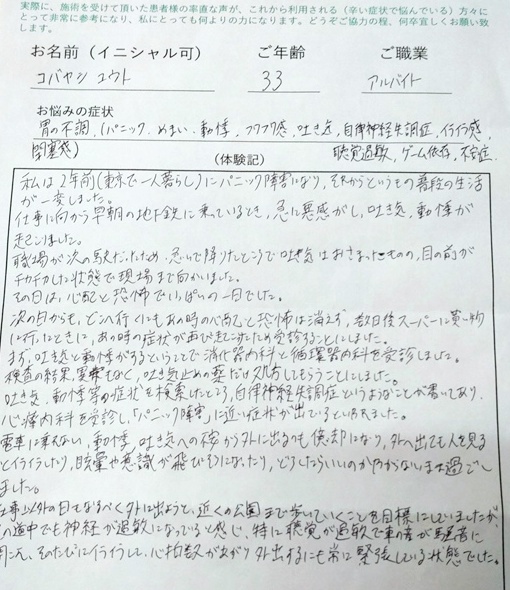 実際に、施術を受けて頂いた患者様の率直な声が、これから利用される（辛い症状で悩んでいる）方々に
とって非常に参考になり、私にとっても何よりの力になります。どうぞご協力の程、何卒宜しくお願い致
します。
お名前（イニシャル可） ご年齢 ご職業
コバヤシ ユウト 33 アルバイト
お悩みの症状
胃の不調、(パニック、めまい、動悸、フワフワ感、吐き気、自律神経失調症、イライラ感、
閉塞感) 聴覚過敏、ゲーム依存、不安症
（体験記）
私は2年前(東京で一人暮らし)にパニック障害になり、それからというもの普段の生活
が一変しました。
仕事に向かう早朝の地下鉄に乗っているとき、急に悪感がし、吐き気、動悸が
起こりました。
職場が次の駅だったため、急いで降りたところで吐き気はおさまったものの、目の前が
チカチカした状態で現場まで向かいました。
その日は、心配と恐怖でいっぱいの一日でした。
次の日からも、どこへ行くにもあの時の心配と恐怖は消えず、数日後スーパーに買い物
に行ったときに、あの時の症状が再び起こったため受診することにしました。
まず、吐き気と動悸がするということで消化器内科と循環器内科を受診しました。
検査の結果、異常もなく、吐き気止めの薬だけ処方してもらうことにしました。
吐き気、動悸等の症状を検索したところ、自律神経失調症というようなことが書いてあり、
心療内科を受診し、「パニック障害」に近い症状が出ていると言われました。
電車に乗れない、動悸、吐き気への不安から外に出るのも億劫になり、外へ出ても人を見る
とイライラしたり、目眩や意識が飛びそうになったり、どうしたらいいのかわからないまま過ごし
ました。
仕事以外の日もなるべく外に出ようと、近くの公園まで歩いていくことを目標にしていましたが、
の道中でも神経が過敏になっていると感じ、特に聴覚が過敏で車の音が騒音に
聞こえ、そのたびにイライラして、心拍数が上がり外出するにも常に緊張している状態でした。